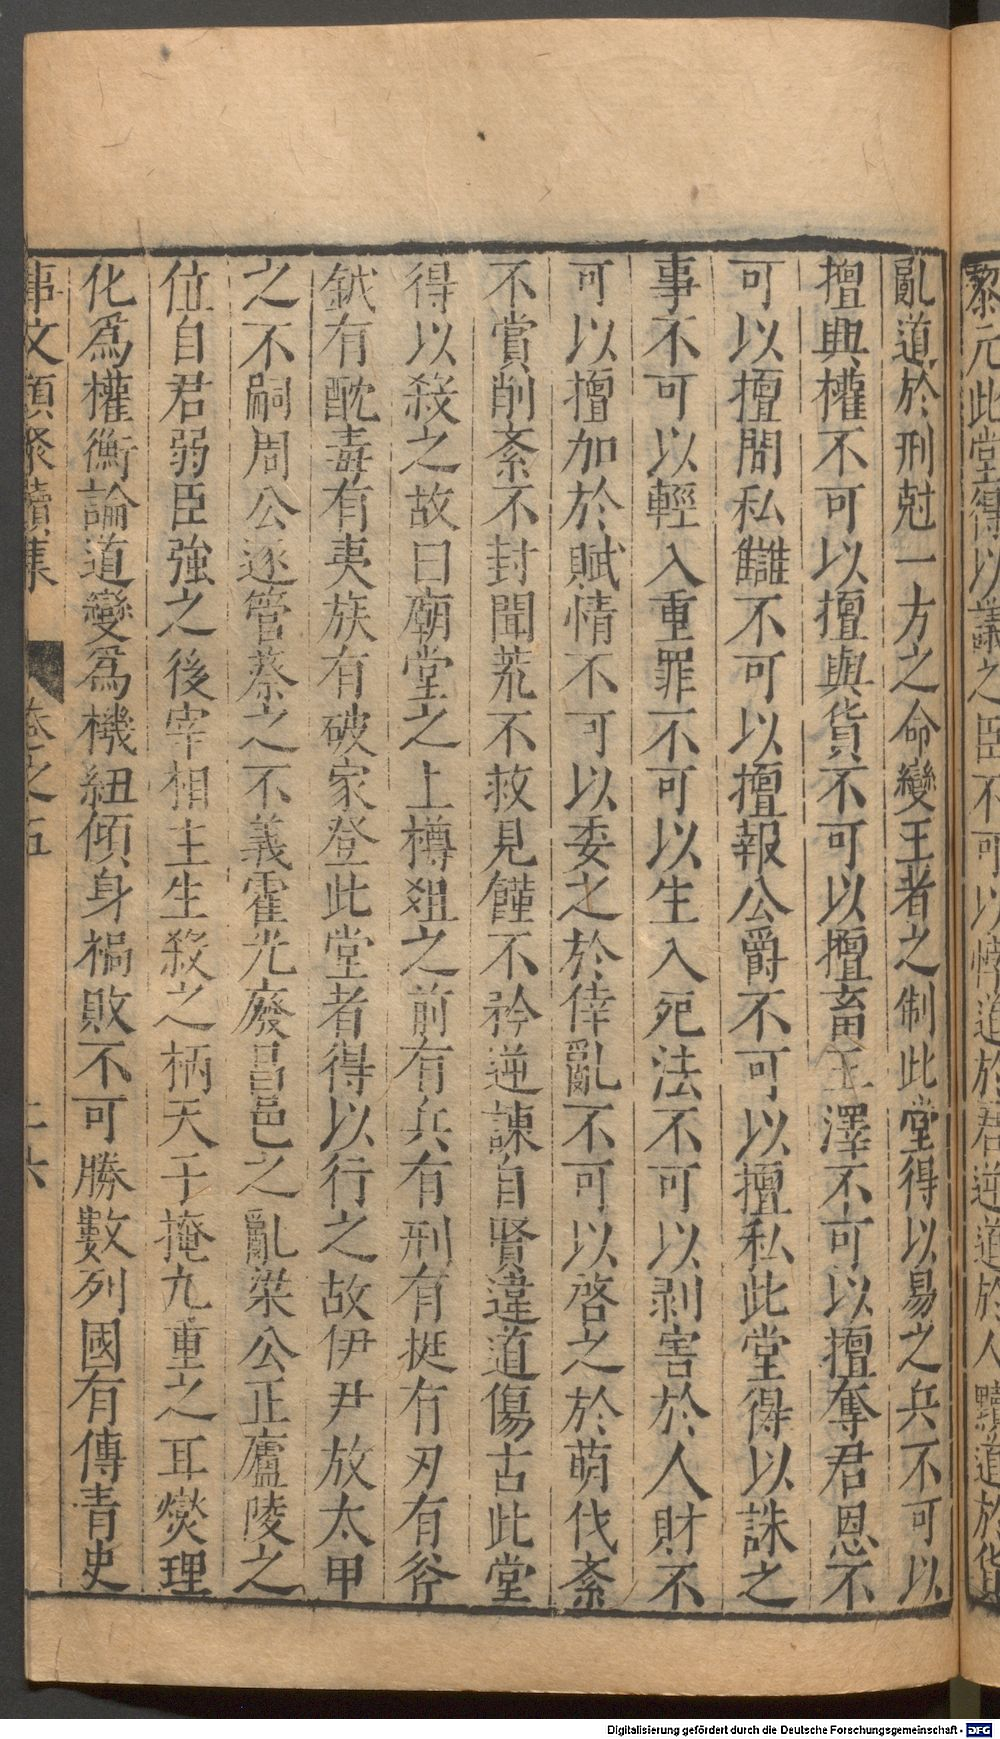 黎元此堂得以議之臣不可以悖道於君逆道於人黷道於貨
亂道於刑尅一方之命變王者之制此堂得以易之兵不可以
擅興權不可以擅與貨不可以擅畜王澤不可以擅奪君恩不
可以擅間私讎不可以擅報公爵不可以擅私此堂得以誅之
事不可以輕入重罪不可以生入死法不可以剥害於人財不
可以擅加於賦情不可以委之於倖亂不可以啓之於萌伐紊
不賞削紊不封聞荒不救見饉不矜逆諫自賢違道傷古此堂
得以殺之故曰廟堂之上樽爼之前有兵有刑有挺有刃有斧
鉞有酖毒有夷族有破家登此堂者得以行之故伊尹放太甲
之不嗣周公逐管蔡之不義霍光廢昌邑之亂梁公正廬陵之
位自君弱臣強之後宰相主生殺之柄天子掩九重之耳爕理
化爲權衡論道變爲機紐傾身禍敗不可勝數列國有傳青史
事文類聚續集 卷之五 十六
Digitalisierung gefördert durch die Deutsche Forschungsgemeinschaft - DFG